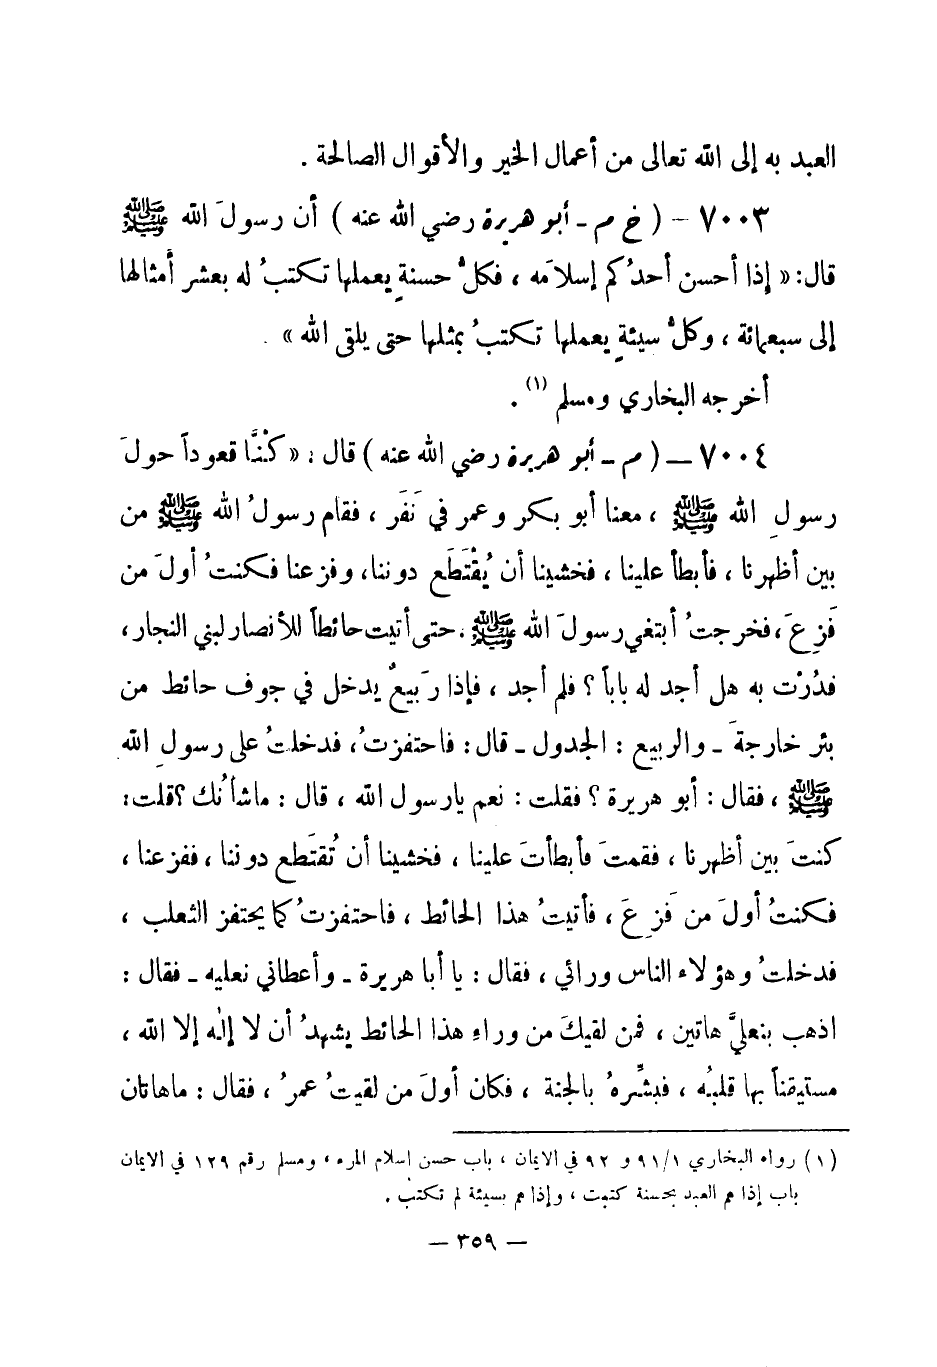 العبد به إلى الله تعالى من أعمال الخير والأقوال الصالحة .
٧٠٠٣ - ( خ م - أبو هريرة رضي الله عنه ) أن رسولَ الله ﷺ
قال: « إذا أحسن أحدُكم إسلامَه ، فكلُّ حسنةٍ يعملها تكتبُ له بعشر أمثالها
إلى سبعمائة ، وكلُّ سيئةٍ يعملها تكتبُ بمثلها حتى يلقى الله » .
أخرجه البخاري ومسلم (١) .
٧٠٠٤ – ( م - أبو هريرة رضي الله عنه ) قال : « كُنَّا قعوداً حولَ
رسولِ الله ﷺ ، معنا أبو بكر وعمر في نَفَر ، فقام رسولُ الله ﷺ من
بين أظهرنا ، فأبطأ علينا ، فخشينا أن يُقْتَطَع دوننا، وفزعنا فكنتُ أولَ من
فَزِعَ، فخرجتُ أبتغي رسولَ الله ﷺ . حتى أتيت حائطاً للأنصار لبني النجار،
فدُرْت به هل أجد له باباً ؟ فلم أجد ، فإذا رَبيعٌ يدخل في جوف حائط من
بئر خارجةَ - والربيع : الجدول - قال: فاحتفزتُ، فدخلتُ على رسولِ الله
ﷺ ، فقال : أبو هريرة ؟ فقلت : نعم يارسول الله ، قال : ماشأنُك ؟ قلت:
كنتَ بين أظهرنا ، فقمتَ فأبطأتَ علينا ، فخشينا أن تُقتَطع دوننا ، ففزعنا ،
فكنتُ أولَ من فَزِعَ ، فأتيتُ هذا الحائط ، فاحتفزتُ كما يحتفز الثعلب ،
فدخلتُ وهؤلاء الناس ورائي ، فقال : يا أبا هريرة - وأعطاني نعليه - فقال :
اذهب بنعليَّ هاتين ، فمن لقيكَ من وراءِ هذا الحائط يشهدُ أن لا إلٰه إلا الله ،
مستيقناً بها قلبُه ، فبشِّرهُ بالجنة ، فكان أولَ من لقيتُ عمرُ ، فقال : ماهاتان
(١) رواه البخاري ٩١/١ و ٩٢ في الايمان ، باب حسن اسلام المرء ، ومسلم رقم ١٢٩ في الايمان
باب إذا هم العبد بحسنة كتبت ، وإذا هم بسيئة لم تكتب .
— ٣٥٩ —